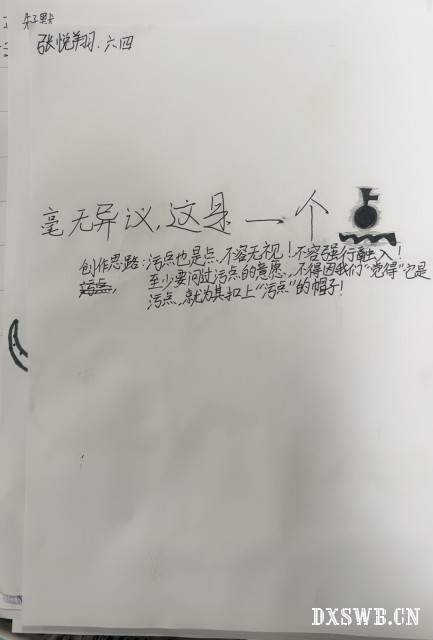 朱子默
张悦翔.六四
毫无异议,这是一个
创作思路:污点也是点,不容无视!不容强行融入!
至少要问过污点的意愿,不得因我们“觉得”它是
污点,就为其扣上“污点”的帽子!
DXSWB.CN